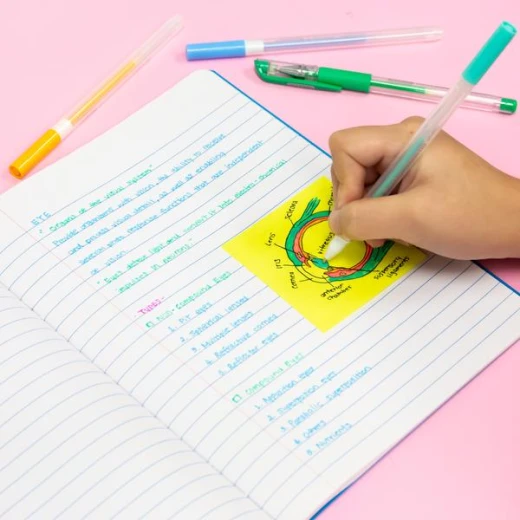 EYE
"Organs of the visual system"
Provide organisms with vision, the ability to receive
and process visual detail, as well as enabling
several photo response functions that are independent
of vision
"Eyes detect light and convert it into electro-chemical
impulses in neurons"
TYPES:
Non-compound Eyes
1. Pit eyes
2. Spherical lensed
3. Multiple lenses
4. Refractive cornea
5. Reflector eyes
Compound Eyes
1. Apposition eyes
2. Superposition eyes
3. Parabolic Superposition
4. Others
5. Nutrients
Sclera
lens
iris
Cornea
anterior
chamber